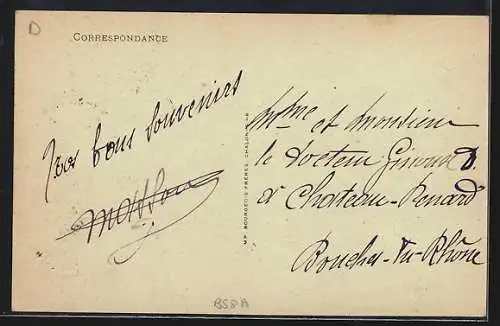 D
CORRESPONDANCE
bons souvenirs
Masson
MP. BOURGEOIS FRÈRES, CHALON-S-S
Mme et Monsieur
le Docteur Giraud D.
à Chateau-Renard
Bouches-du-Rhône
BS8A